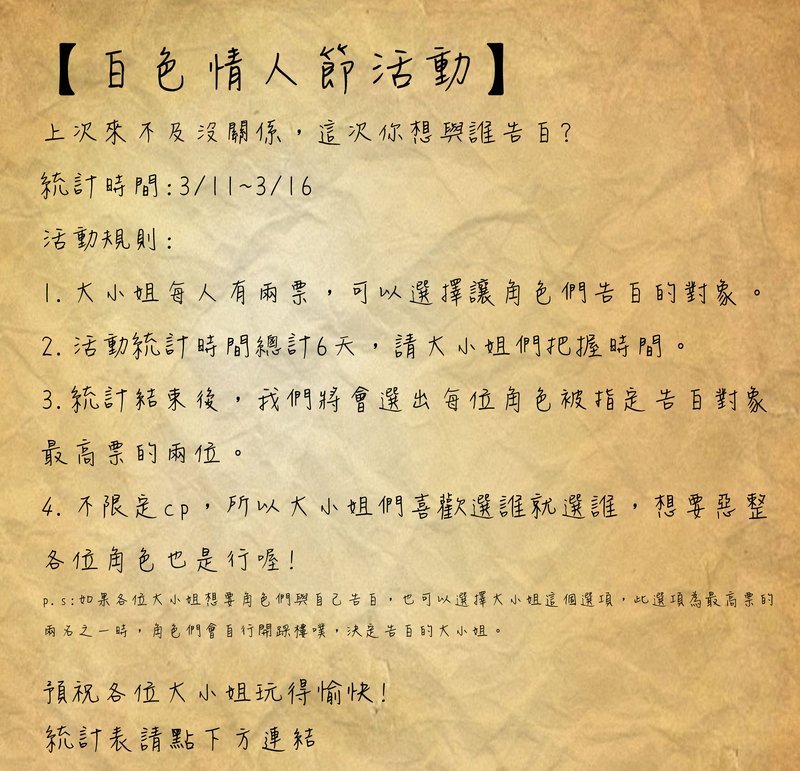 【百色情人節活動】
上次來不及沒關係，這次你想與誰告百?
統計時間:3/11~3/16
活動規則:
1. 大小姐每人有兩票，可以選擇讓角色們告百的對象。
2. 活動統計時間總計6天，請大小姐們把握時間。
3. 統計結束後，我們將會選出每位角色被指定告百對象
最高票的兩位。
4. 不限定cp，所以大小姐們喜歡選誰就選誰，想要惡整
各位角色也是行喔!
p.s:如果各位大小姐想要角色們與自己告百，也可以選擇大小姐這個選項，此選項為最高票的
兩名之一時，角色們會自行開踩樓噗，決定告百的大小姐。
預祝各位大小姐玩得愉快!
統計表請點下方連結